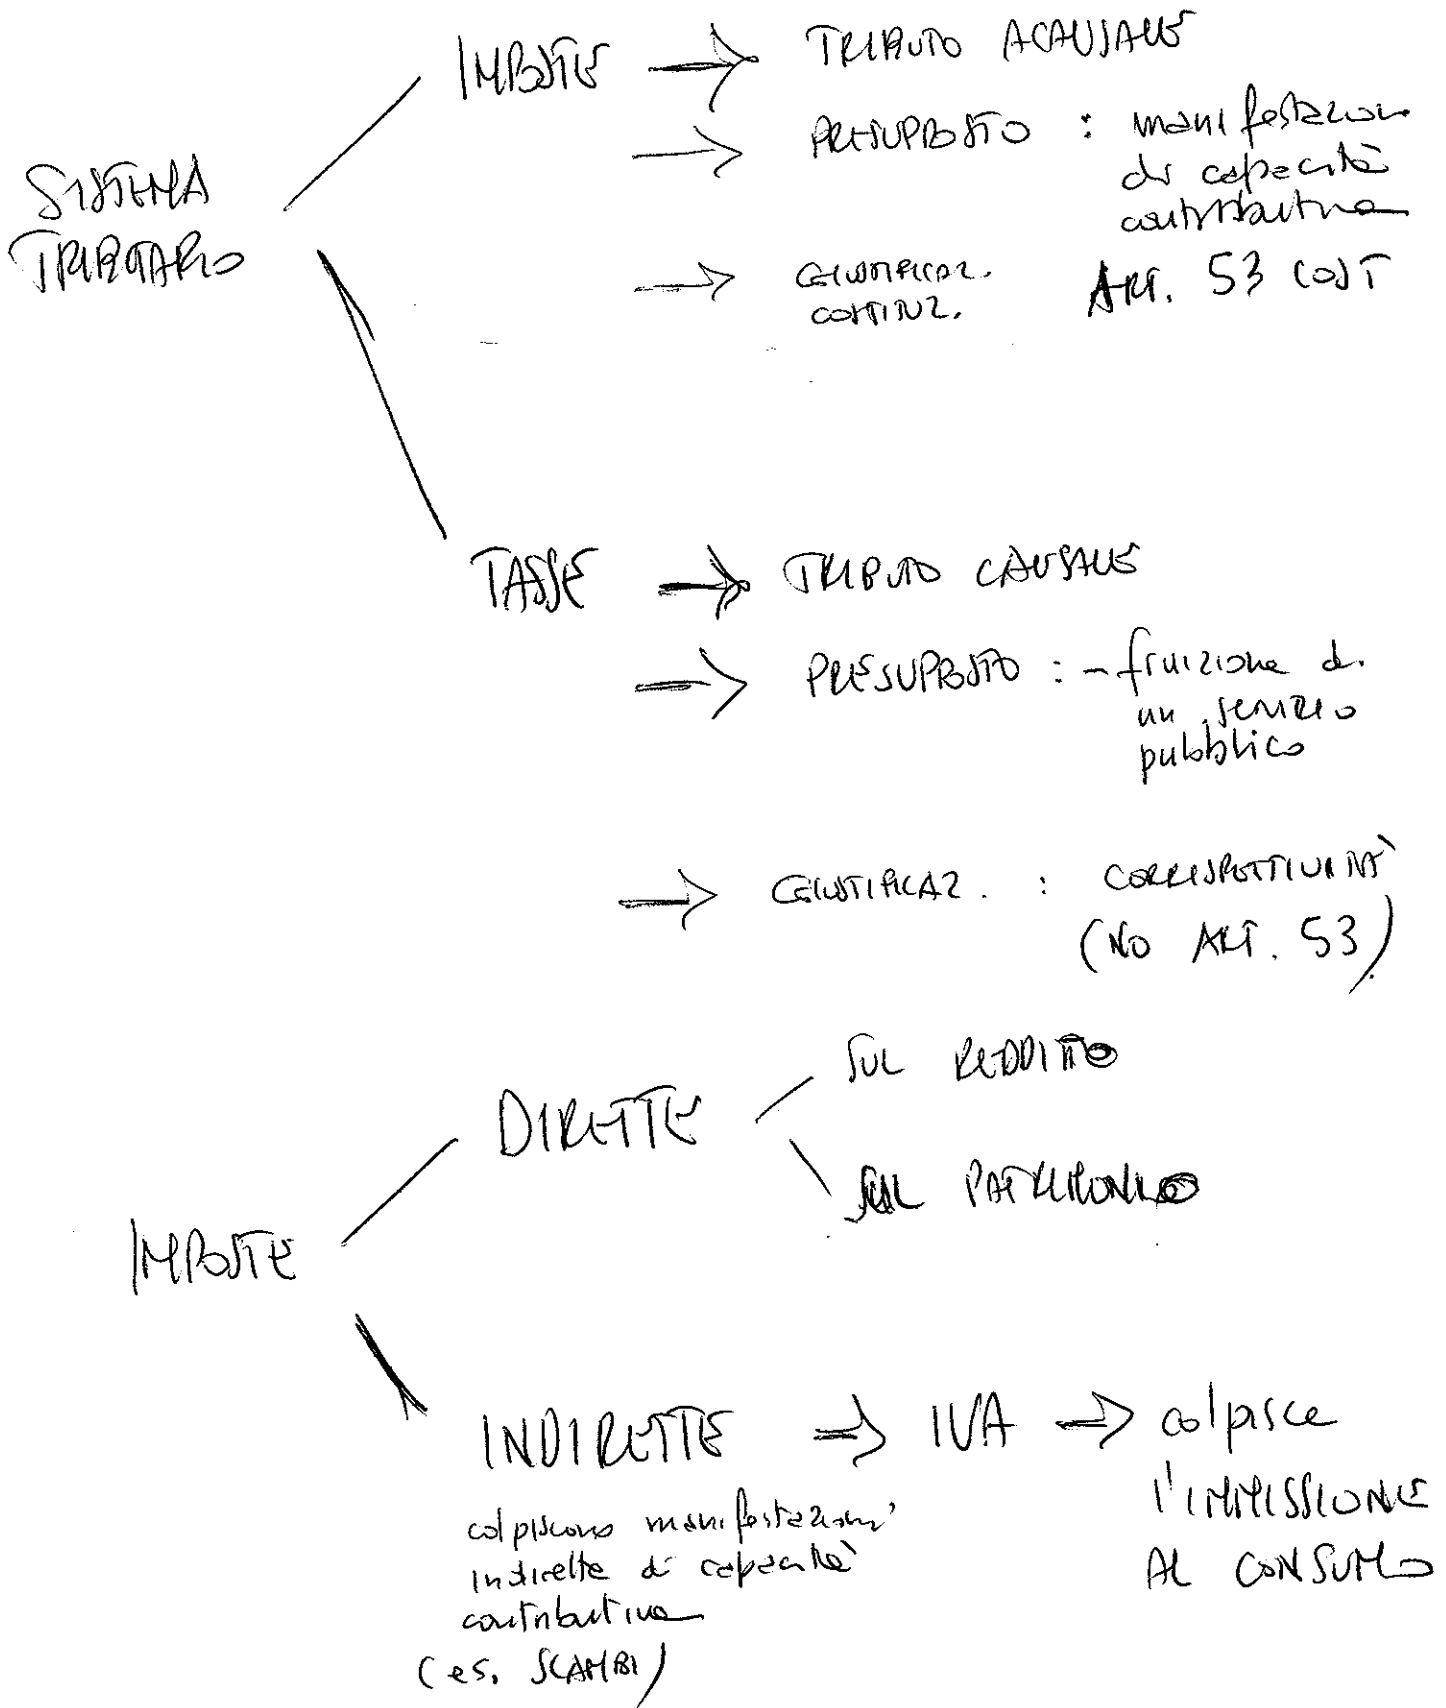 SISTEMA
TRIBUTARIO
IMPOSTE → TRIBUTO ACAUSALE
→ PRESUPPOSTO : manifestazione
di capacità
contributiva
→ GIUSTIFICAZ. ART. 53 COST
COSTITUZ.
TASSE → TRIBUTO CAUSALE
→ PRESUPPOSTO : - fruizione di
un servizio
pubblico
→ GIUSTIFICAZ. : CORRISPETTIVITÀ
(NO ART. 53)
IMPOSTE
DIRETTE
SUL REDDITO
SUL PATRIMONIO
INDIRETTE ⇒ IVA ⇒ colpisce
l'IMMISSIONE
AL CONSUMO
colpiscono manifestazioni
indirette di capacità
contributiva
(es. SCAMBI)